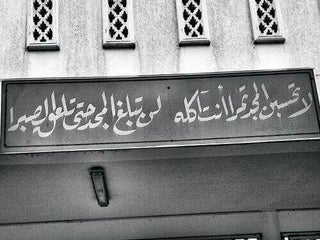 لا تحسبن المجد تمرا أنت آكله لن تبلغ المجد حتى تلعق الصبرا